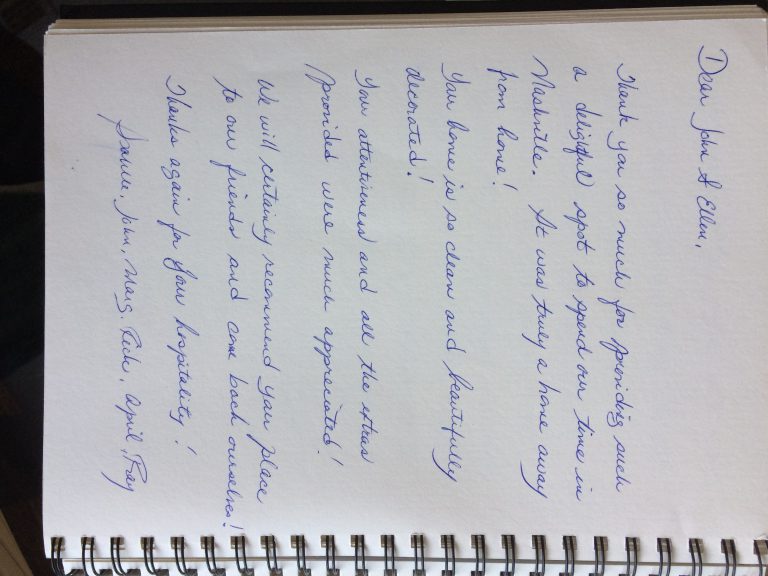 Dear John & Ellen,
Thank you so much for providing such
a delightful spot to spend our time in
Nashville. It was truly a home away
from home!
Your home is so clean and beautifully
decorated!
Your attentiveness and all the extras
provided were much appreciated!
We will certainly recommend your place
to our friends and come back ourselves!
Thanks again for your hospitality!
John, Marg, Rich, April, Ray